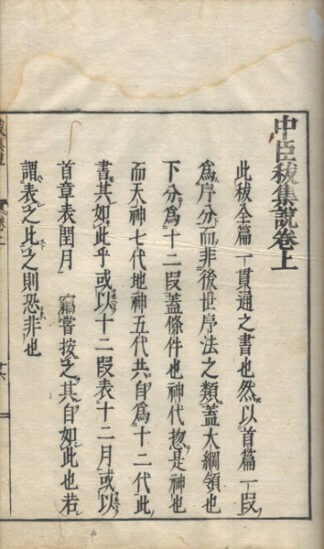 中臣秡集說卷上
此秡全篇一貫通之書也然以首篇一段
爲序分而非後世序法之類蓋大綱領也
下分爲十二段蓋條件也神代極是神也
而天神七代地神五代共自爲十二代此
書其如此乎或以十二段表十二月或以
首章表閏月 竊嘗按之其自如此也若
謂表之此之則恐非也